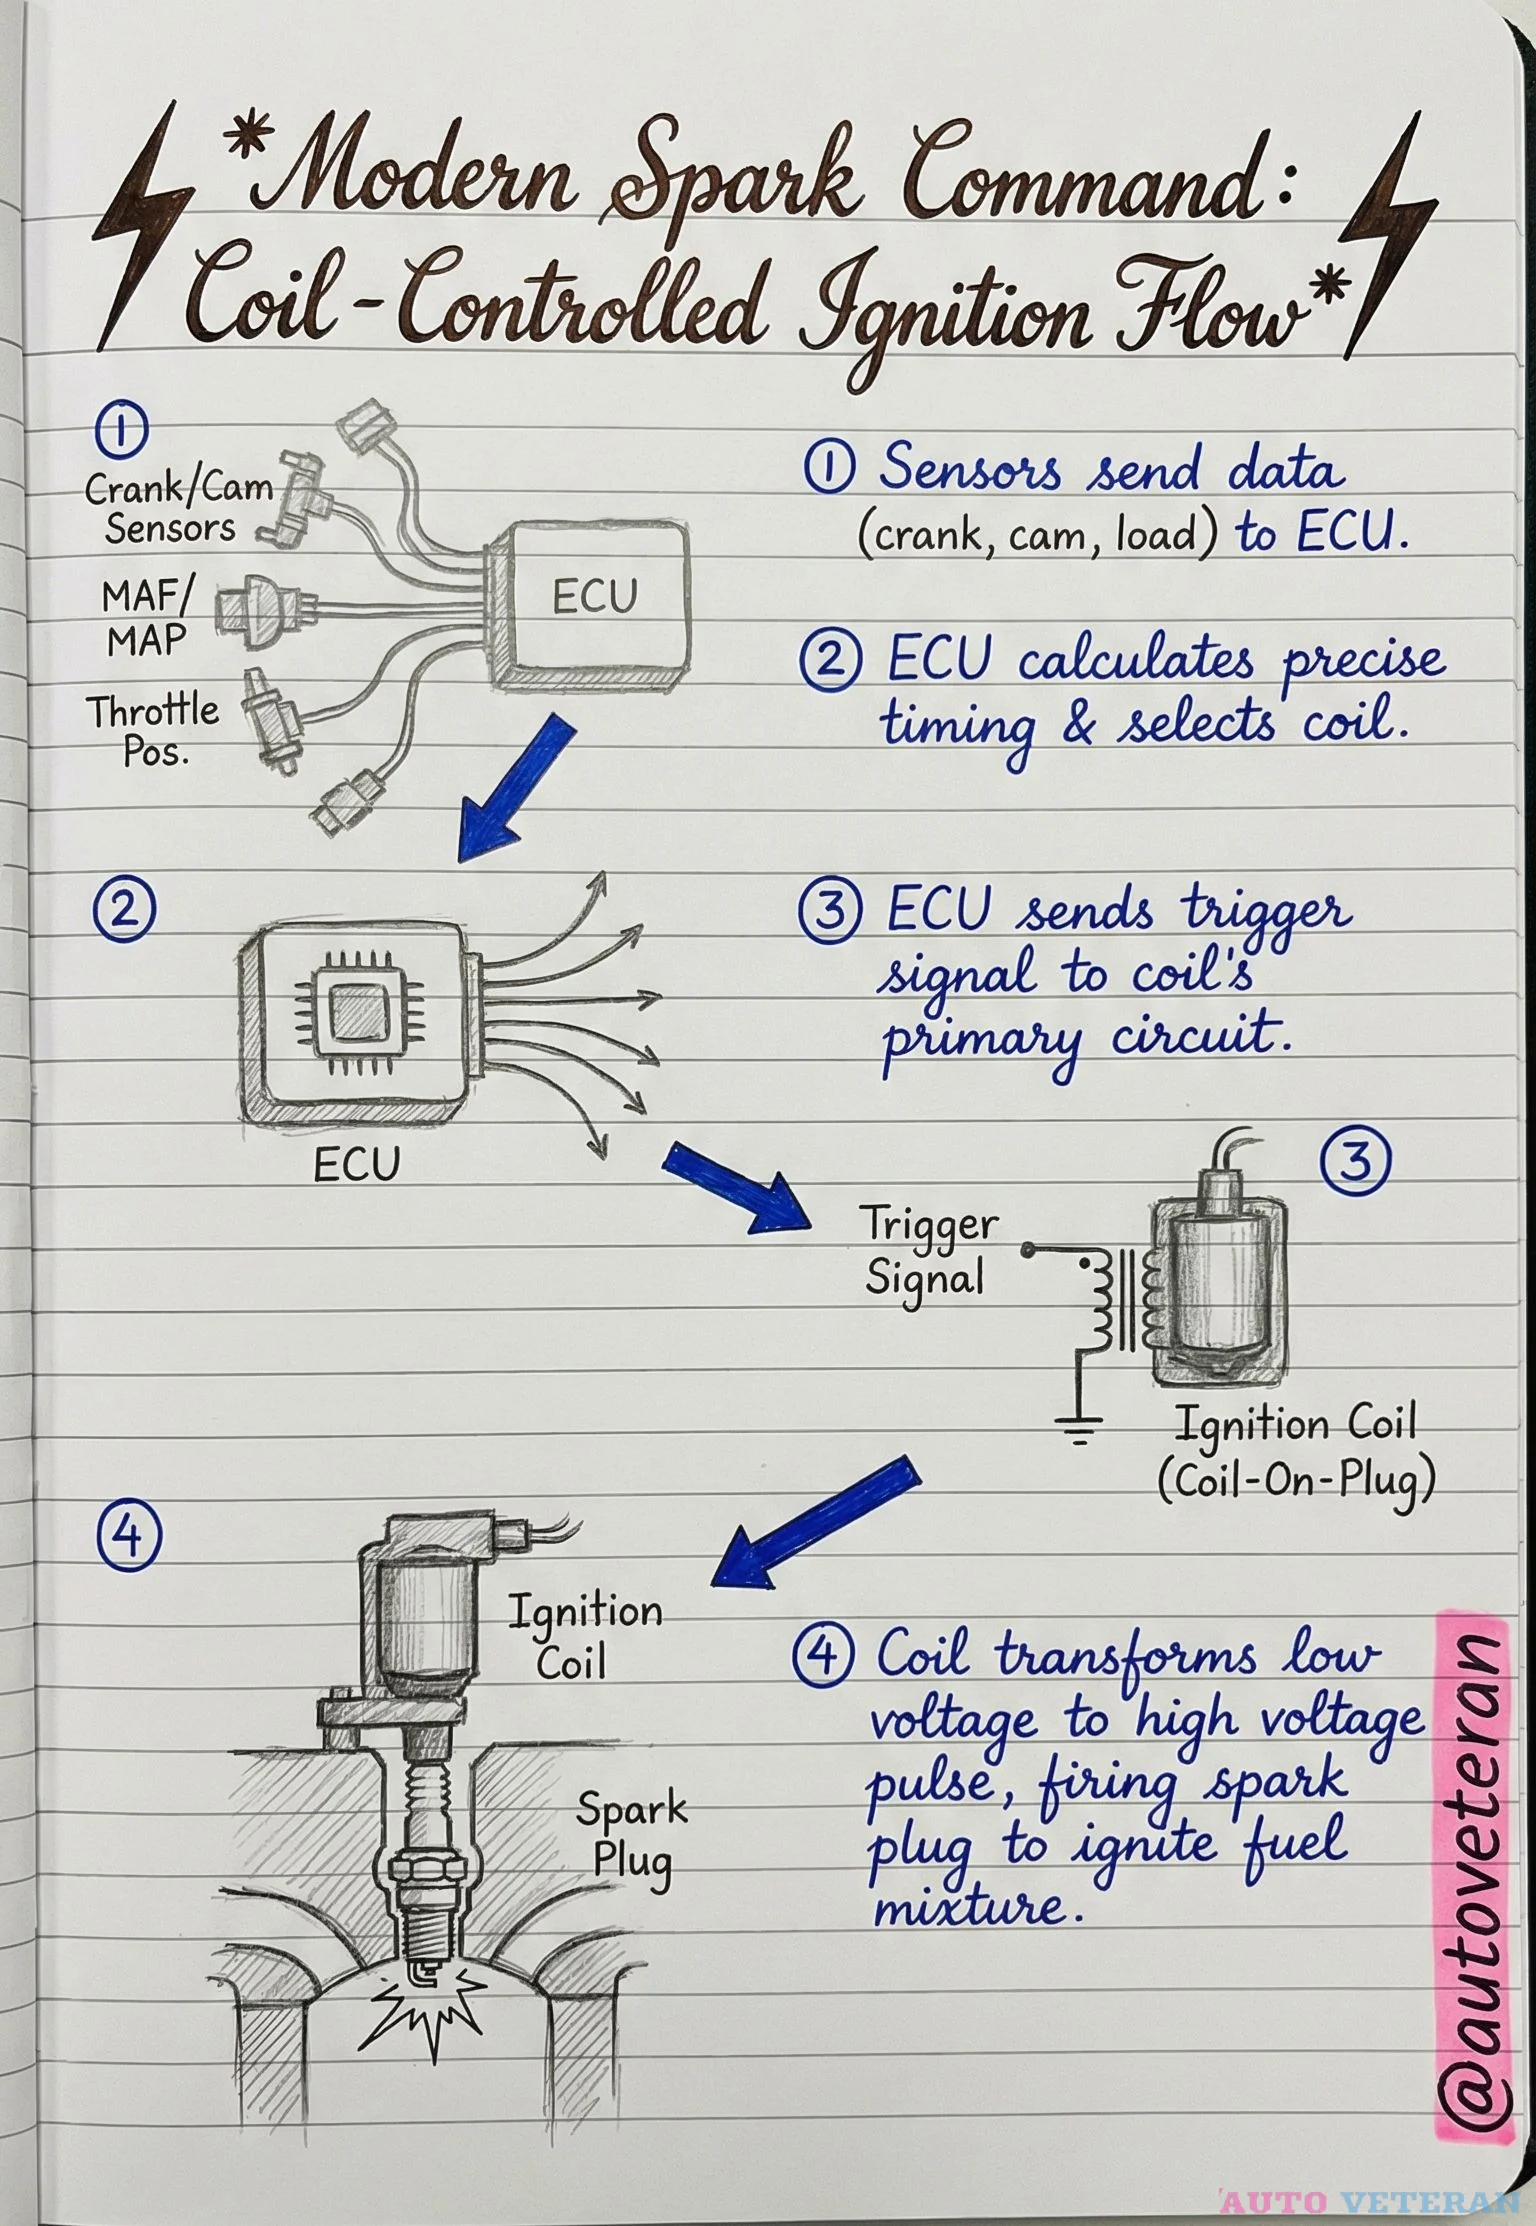 *Modern Spark Command:
Coil-Controlled Ignition Flow*
①
Crank/Cam
Sensors
MAF/
MAP
Throttle
Pos.
ECU
① Sensors send data
(crank, cam, load) to ECU.
② ECU calculates precise
timing & selects coil.
②
ECU
③ ECU sends trigger
signal to coil's
primary circuit.
③
Trigger
Signal
Ignition Coil
(Coil-On-Plug)
④
Ignition
Coil
Spark
Plug
④ Coil transforms low
voltage to high voltage
pulse, firing spark
plug to ignite fuel
mixture.
@autoveteran
AUTO VETERAN